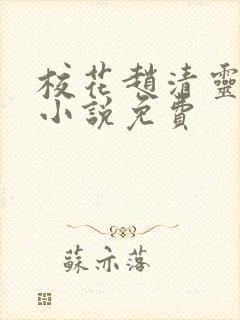 校花趙清靈
小說免費
蘇亦落